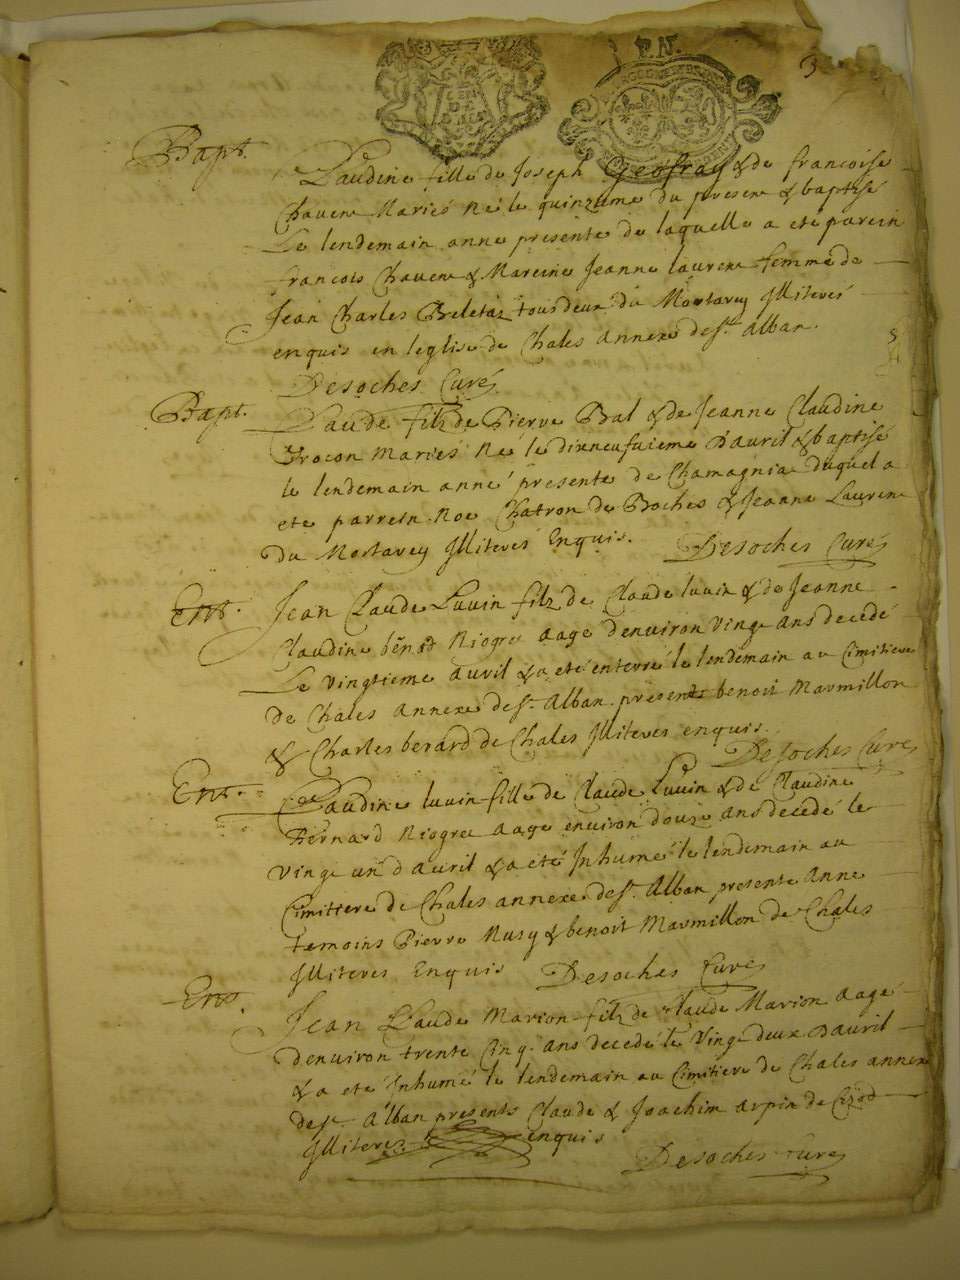 3
Bapt.
Claudine fille de Joseph Geofray & de francoise
Chavene Mariés Né le quinzieme du present & baptisé
Le lendemain anne presente de laquelle a eté parein
francois Chavene & Mareine Jeanne laurent femme de
Jean Charles Beletaz tous deux du Mortarey Illiterés
enquis en leglise de Chales annexe de St. Alban.
Desoches Curé
Bapt.
Claude filz de Pierre Bal & de Jeanne Claudine
Trocon Mariés Né le dixneufuieme Dauril & baptisé
le lendemain anné presente de Chamagnia duquel a
ete parrein Noe Chatron de Boches & Jeanne Laurent
du Mortarey Illiterés Enquis. Desoches Curé
Ent.
Jean Claude Luuin filz de Claude luuin & de Jeanne
Claudine Riogre aage denuiron vingt ans decede
Le vingtieme auril & a eté enterré le lendemain au Cimitiere
de Chales annexe de St. Alban presents benoit Marmillon
& Charles berard de Chales Illiteres enquis.
Desoches Curé
Ent.
Claudine luuin fille de Claude Luuin & de Claudine
Bernard Riogre aage enuiron douze ans decedé le
vingt un d auril & a eté Inhumé le lendemain au
Cimittere de Chales annexe de St. Alban presente Anne
temoins Pierre Musy & benoit Marmillon de Chales
Illiteres Enquis Desoches Curé
Ent.
Jean Claude Marion filz de Claude Marion aagé
denuiron trente Cinq ans decedé le Vingt deux Dauril
& a eté Inhumé le lendemain au Cimitiere de Chales annexe
de St Alban presents Claude & Joachim arpin de
Illiteres enquis
Desoches Curé